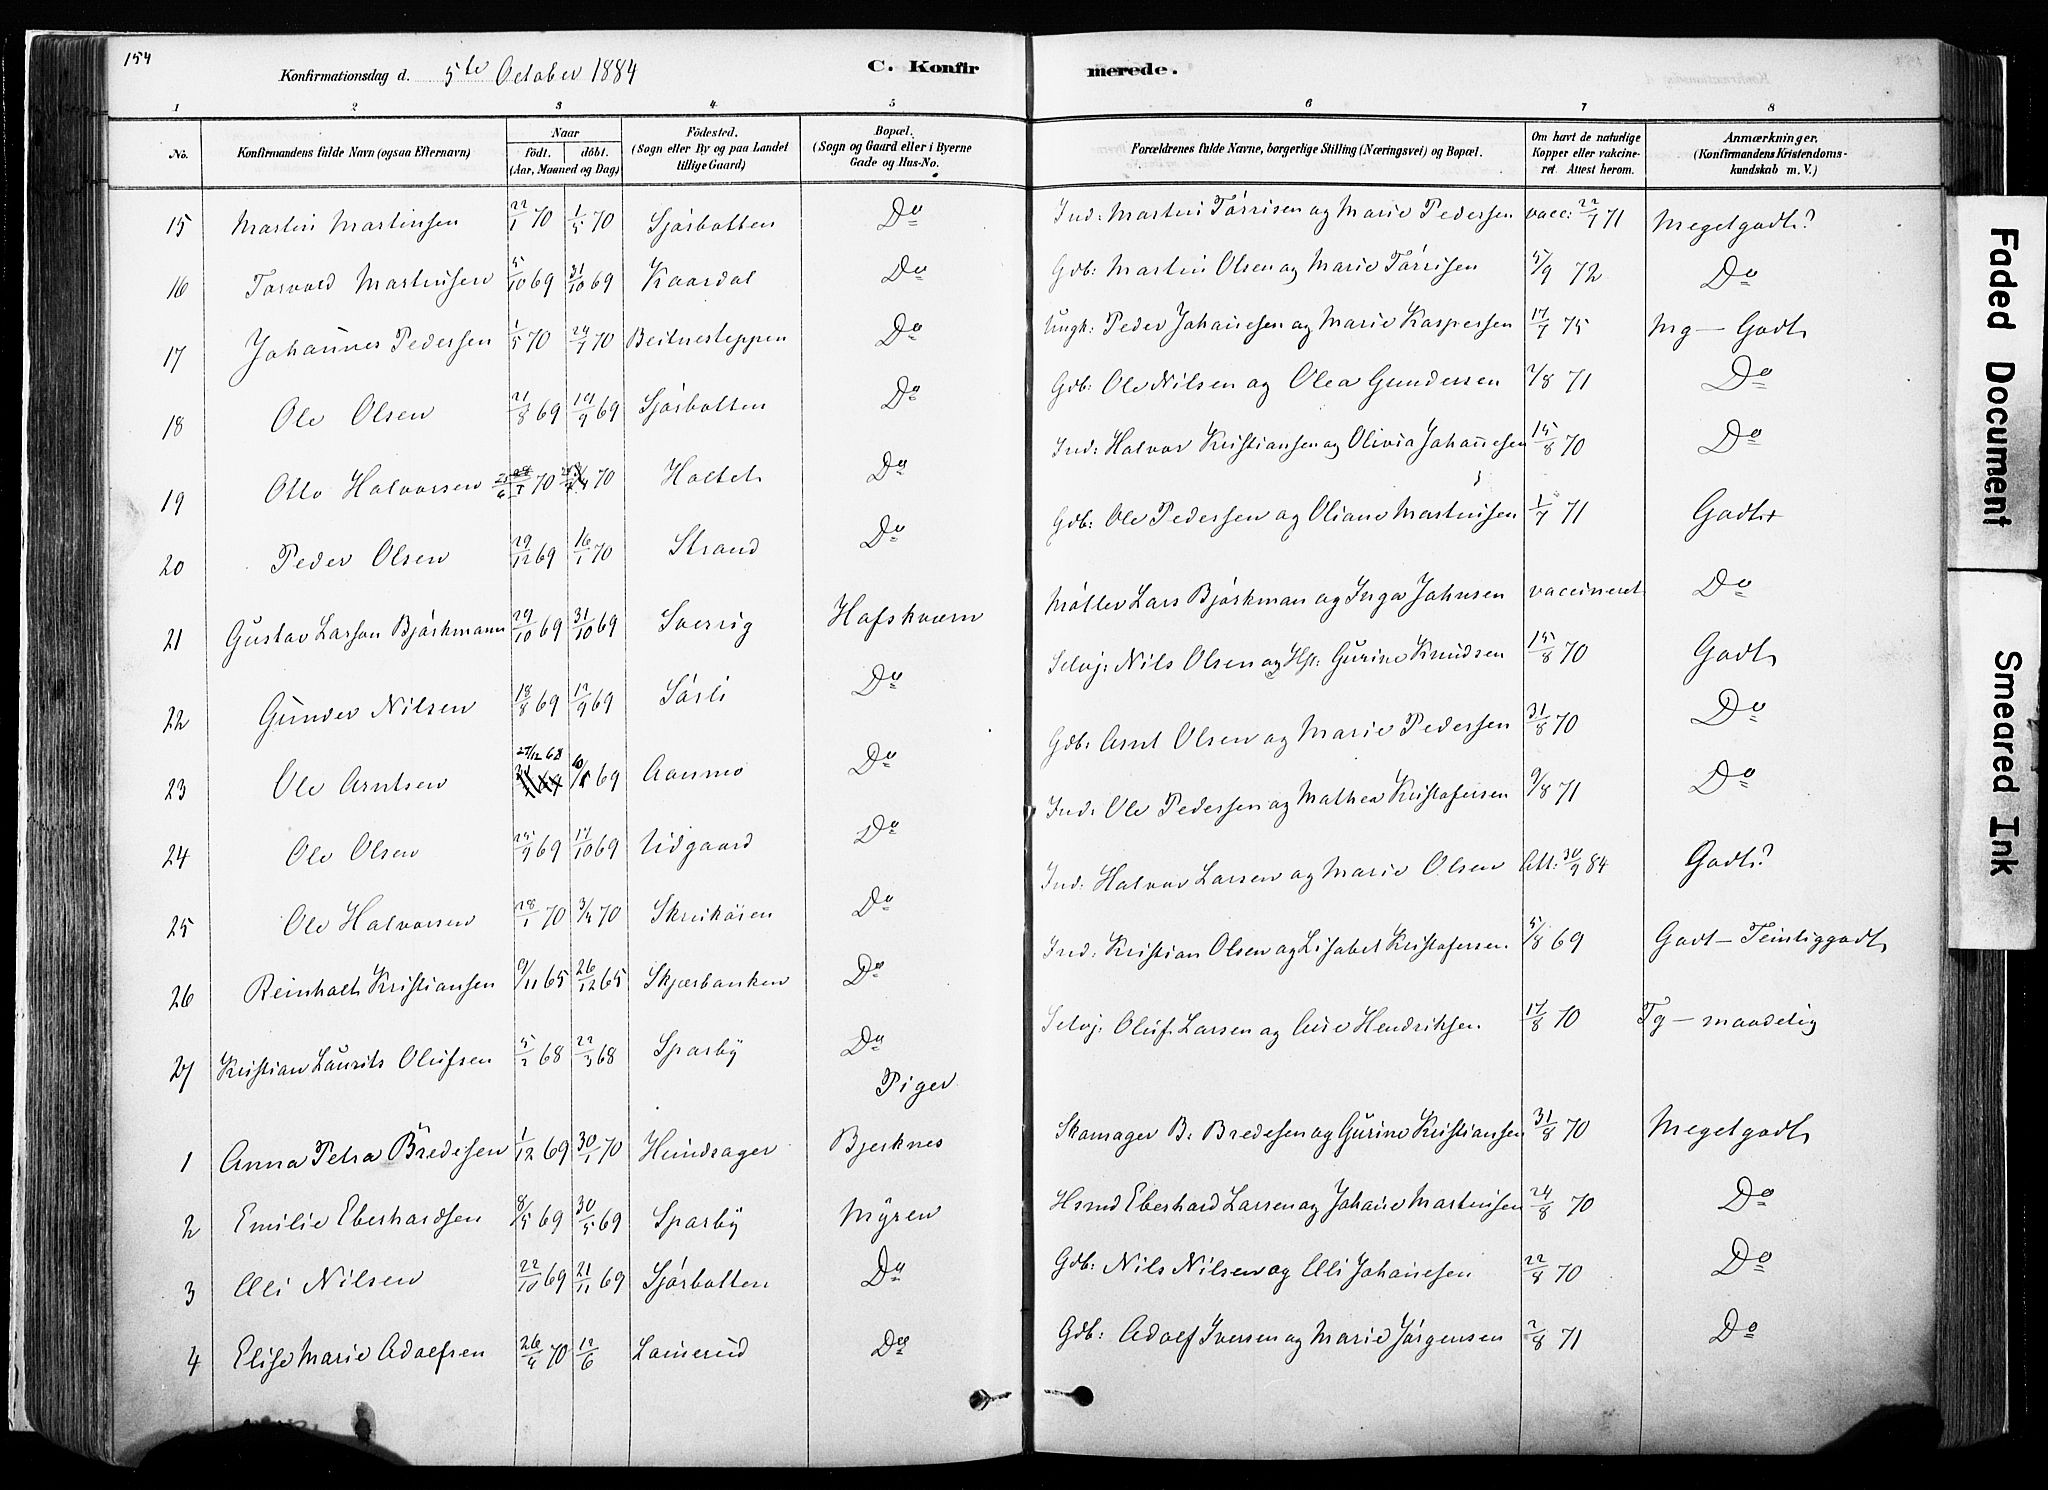 154
Konfirmationsdag d. 5te October 1884
C. Konfirmerede.
1 2 3 4 5 6 7 8
No. Konfirmandens fulde Navn (ogsaa Efternavn) Naar født. døbt. (Aar, Maaned og Dag) Fødested. (Sogn eller By og paa Landet tillige Gaard) Bopæl. (Sogn og Gaard eller i Byerne Gade og Hus-No. Forældrenes fulde Navne, borgerlige Stilling (Næringsvei) og Bopæl. Om havt de naturlige Kopper eller vakcineret Attest herom. Anmærkninger, (Konfirmandens Kristendomskundskab m. V.)
15 Martin Martinsen 22/1 70 1/5 70 Sjørbotten Do Ind: Martin Tørrisen og Marie Pedersen vacc: 22/7 71 Megetgodt?
16 Torvald Martinsen 5/10 69 31/10 69 Kaardal Do Gdb: Martin Olsen og Marie Tørrisen 5/9 72 Do
17 Johannes Pedersen 1/5 70 24/7 70 Beitnesteppen Do Ungk: Peder Johanesen og Marie Kaspersen 17/7 75 Mg — Godt
18 Ole Olsen 21/8 69 19/9 69 Sjørbotten Do Gdb: Ole Nilsen og Olea Gundersen 2/8 71 Do
19 Otto Halvorsen 70 70 Holtet Do Ind: Halvor Kristiansen og Olivia Johanesen 15/8 70 Do
20 Peder Olsen 29/12 69 16/1 70 Strand Do Gdb: Ole Pedersen og Oliane Martinsen 1/7 71 Godt+
21 Gustav Larson Bjørkmann 29/10 69 31/10 69 Sverrig Hafskværn Møller Lars Bjørkman og Inga Johnsen vaccineret Do
22 Gunder Nilsen 18/8 69 12/9 69 Sørli Do Selvj: Nils Olsen og Hp: Gurine Knudsen 15/8 70 Godt
23 Ole Arntsen 27/12 68 69 Aanmo Do Gdb: Arnt Olsen og Marie Pedersen 31/8 70 Do
24 Ole Olsen 25/9 69 17/10 69 Udgaard Do Ind: Ole Pedersen og Mathea Kristofersen 9/8 71 Do
25 Ole Halvorsen 28/1 70 3/4 70 Skreikøien Do Ind: Halvor Larsen og Marie Olsen Att: 30/9 84 Godt?
26 Reinholt Kristiansen 9/11 65 26/12 65 Skjærbanken Do Ind: Kristian Olsen og Lisabet Kristofersen 5/8 69 Godt — Temliggodt
27 Kristian Laurits Olufsen 5/2 68 22/3 68 Sparby Do Selvj: Oluf Larsen og Ane Hendriksen 17/8 70 Tg — maadelig
Piger
1 Anna Petra Bredesen 1/12 69 30/1 70 Heindsager Bjerknes Skomager B: Bredesen og Gurine Kristiansen 31/8 70 Megetgodt
2 Emilie Eberhardsen 8/5 69 30/5 69 Sparby Myren Hsmd Eberhard Larsen og Johane Martinsen 24/8 70 Do
3 Elli Nilsen 22/10 69 21/11 69 Sjørbotten Do Gdb: Nils Nilsen og Elli Johanesen 22/8 70 Do
4 Elise Marie Adolfsen 26/4 70 12/6 Lomerud Do Gdb: Adolf Iversen og Marie Jørgensen 2/8 71 Do
Faded Document
Smeared Ink